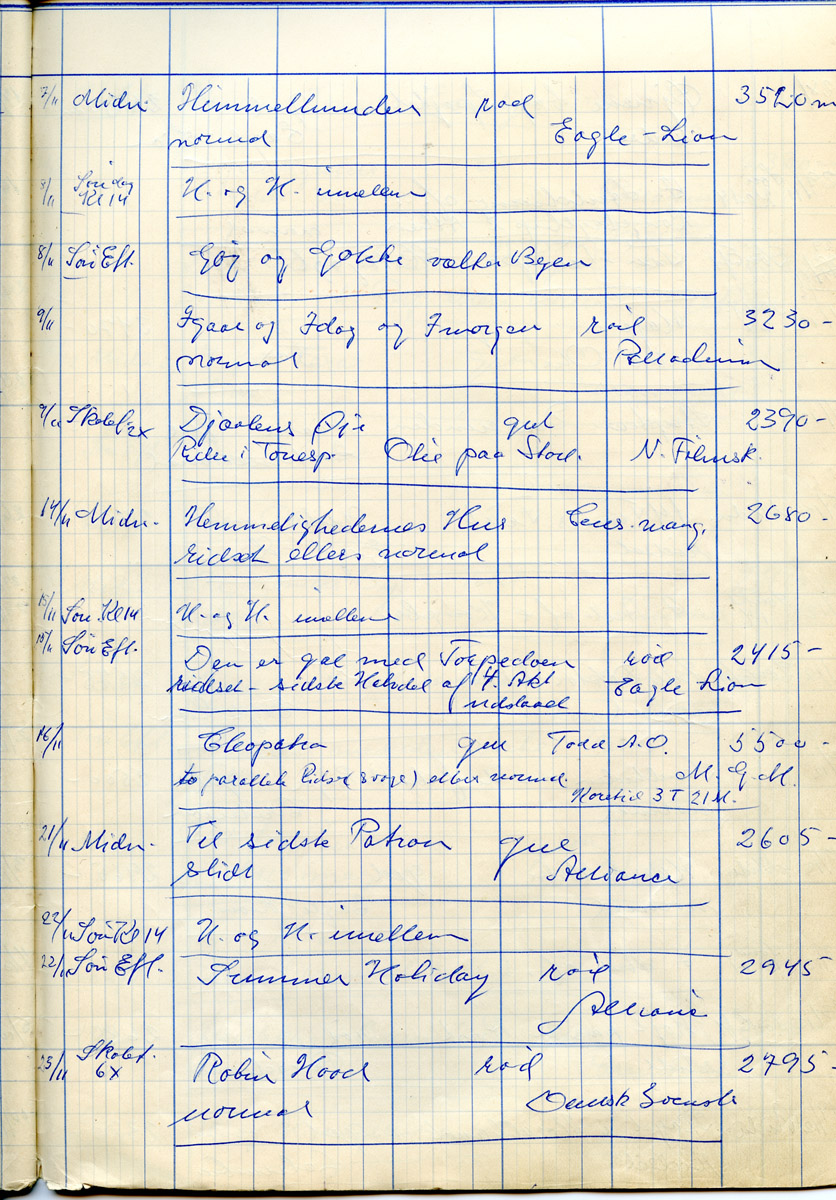 7/11 Midn. Himmelhunden rød 3520 m
normal Eagle-Lion
8/11 Søndag Kl 14 H. og H. imellem
8/11 Søn Eft. Gøg og Gokke vælter Byen
9/11 Igaar og Idag og Imorgen rød 3230 -
normal Palladium
9/11 Skolef 2x Djævlens Øje gul 2390 -
Ridse i Tonesp. Olie paa Stod. N. Filmsk.
14/11 Midn. Hemmelighedernes Hus Cens. mang. 2680 -
ridset ellers normal
15/11 Søn. Kl 14 H. og H. imellem
15/11 Søn Eft. Den er gal med Torpedoen rød 2415 -
ridset - sidste Halvdel af 4. Akt Eagle Lion
udslaaet
16/11 Cleopatra gul Todd A.O. 5500 -
to parallele Ridser (svage) ellers normal M.G.M.
Køretid 3 T 21 M.
21/11 Midn. Til sidste Patron gul 2605 -
slidt Alliance
22/11 Søn Kl 14 H. og H. imellem
22/11 Søn Eft. Summer Holiday rød 2945
Alliance
25/11 Skolef. 6x Robin Hood rød 2795 -
normal Dansk Svensk